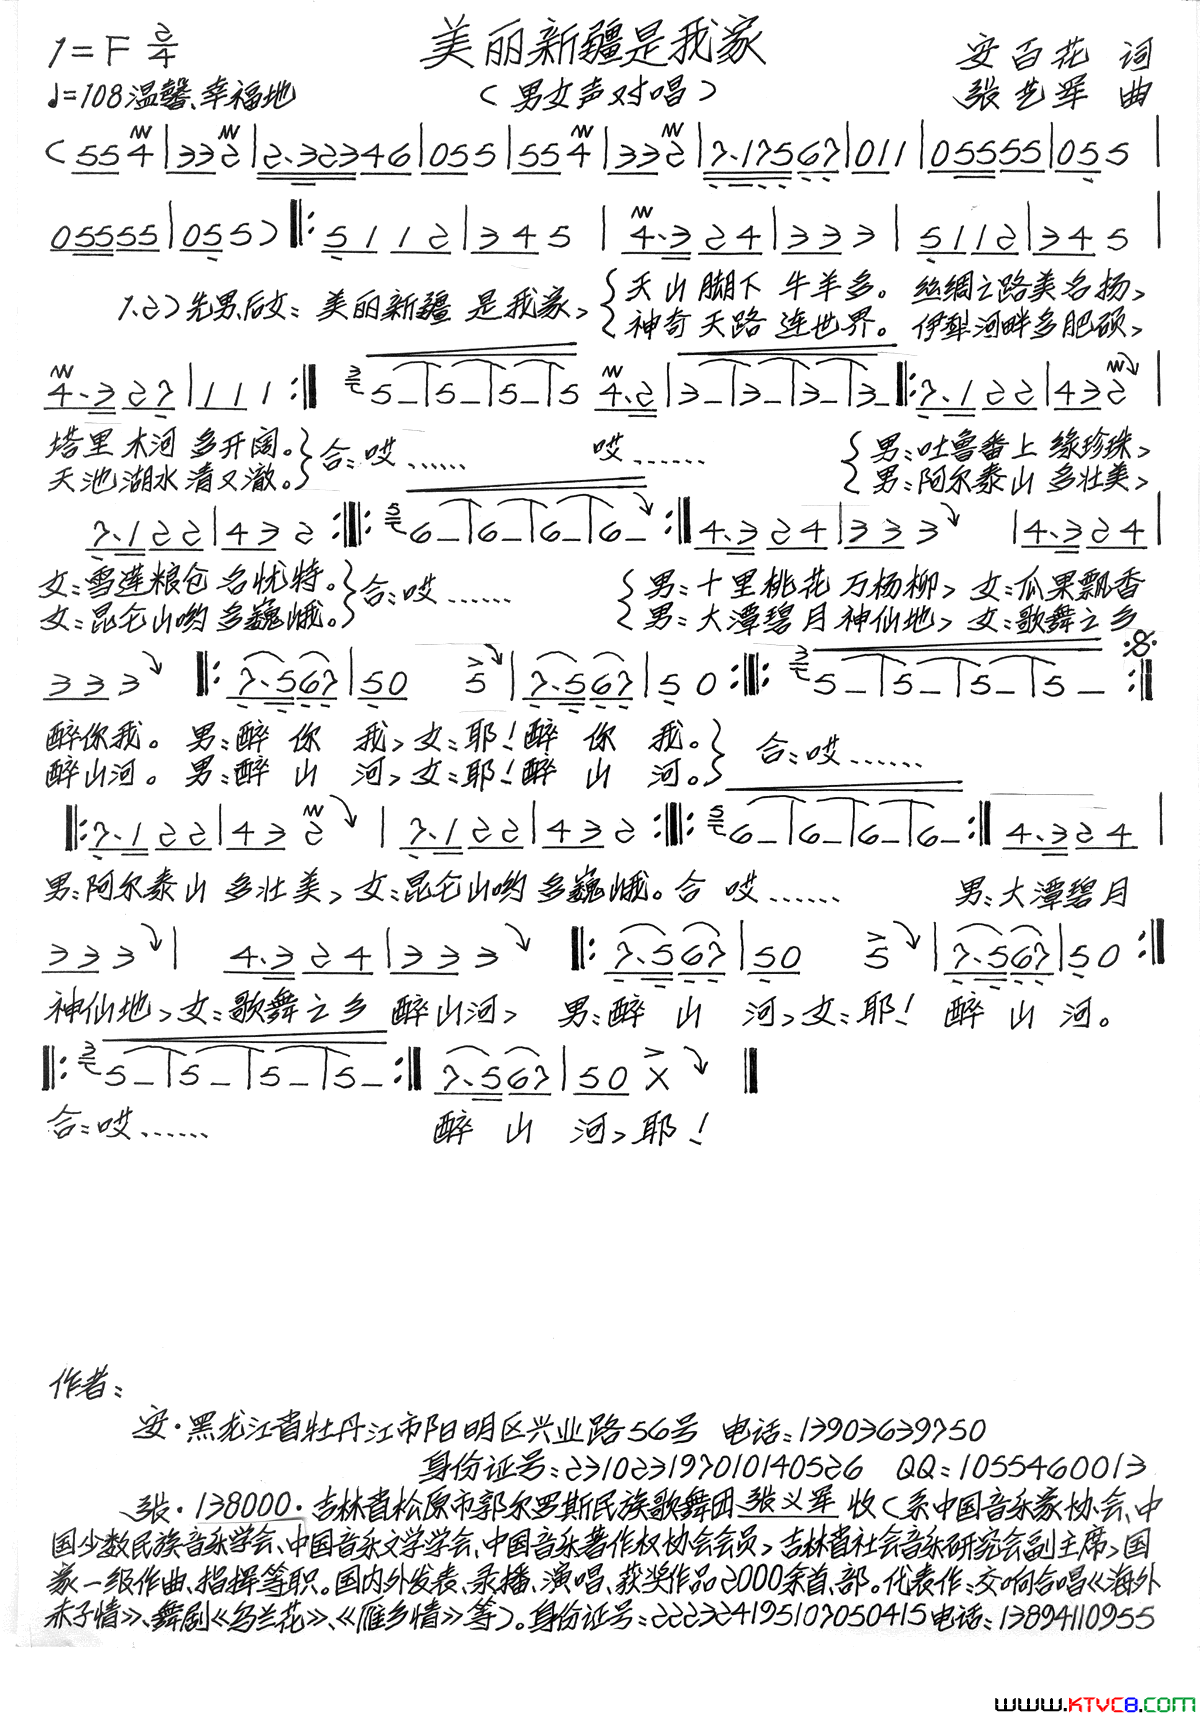 1=F 2/4
美丽新疆是我家
安百花 词
♩=108 温馨、幸福地
（男女声对唱）
张艺军 曲
(554|332|2·32346|055|554|332|7·17567|011|05555|055|
05555|055)‖:5112|345|4·324|333|5112|345|
1.2)先男、后女：美丽新疆 是我家，
天山脚下 牛羊多。 丝绸之路美名扬，
神奇天路 连世界。 伊犁河畔多肥硕，
4·327|111:‖ 5–|5–|5–|5 4·2|3–|3–|3–|3–‖:7·122|432|
塔里木河 多开阔。 合：哎…… 哎…… 男：吐鲁番上 缘珍珠，
天池湖水清又澈。 男：阿尔泰山 多壮美，
7·122|432:‖:6–|6–|6–|6–:‖4·324|333 |4·324|
女：雪莲粮仓 名优特。 合：哎…… 男：十里桃花 万杨柳， 女：瓜果飘香
女：昆仑山哟 多巍峨。 男：大潭碧月神仙地， 女：歌舞之乡
333 ‖:7·567|50 5|7·567|50:‖:5–|5–|5–|5–:‖
醉你我。 男：醉 你 我，女：耶！醉 你 我。 合：哎……
醉山河。 男：醉 山 河，女：耶！醉 山 河。
‖:7·122|432 |7·122|432:‖:6–|6–|6–|6–:‖4·324|
男：阿尔泰山 多壮美，女：昆仑山哟 多巍峨。合 哎…… 男：大潭碧月
333| 4·324|333 ‖:7·567|50 5|7·567|50:‖
神仙地，女：歌舞之乡 醉山河， 男：醉 山 河，女：耶！ 醉 山 河。
‖:5–|5–|5–|5–:‖7·567|50 X ‖
合：哎…… 醉 山 河，耶！
作者：
安·黑龙江省牡丹江市阳明区兴业路56号 电话：13903639750
身份证号：231023197010140526 QQ：1055460013
张·138000·吉林省松原市郭尔罗斯民族歌舞团张义军 收（系中国音乐家协会、中
国少数民族音乐学会、中国音乐文学学会、中国音乐著作权协会会员，吉林省社会音乐研究会副主席，国
家一级作曲、指挥等职。国内外发表、录播、演唱、获奖作品2000余首、部。代表作：交响合唱《海外
赤子情》、舞剧《乌兰花》、《雁乡情》等）。身份证号：222324195107050415电话：13894110955
www.KTVC8.com